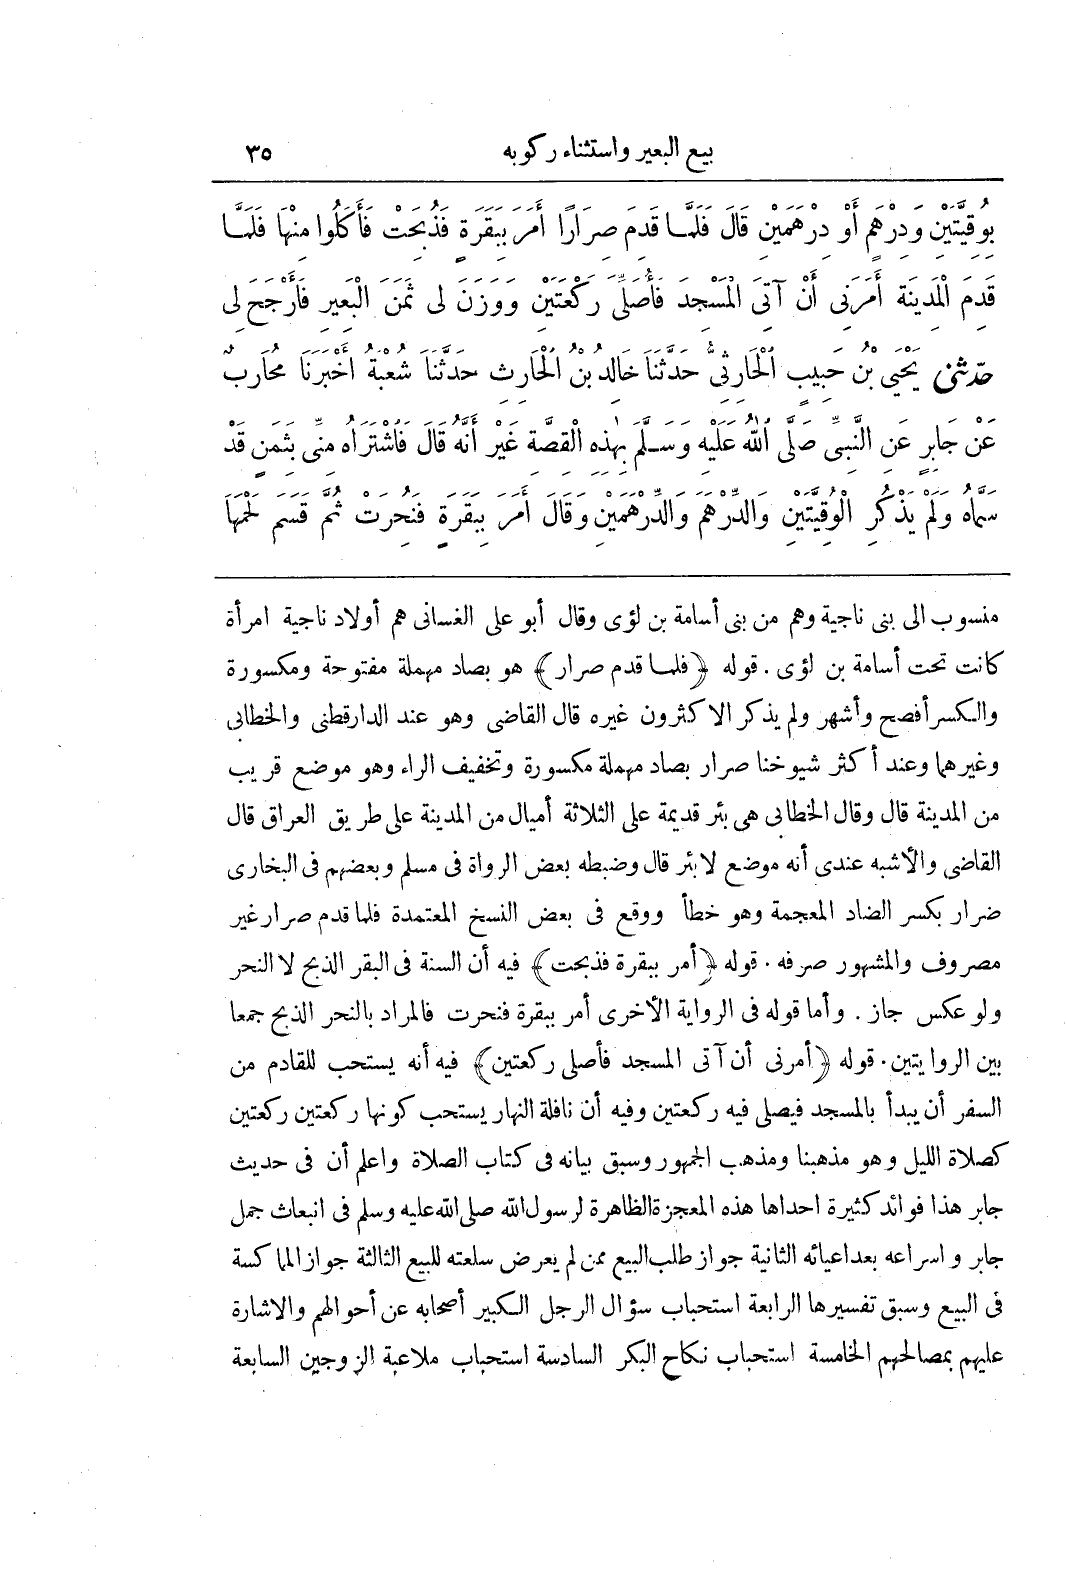 بيع البعير واستثناء ركوبه ٣٥
بِوُقِيَّتَيْنِ وَدِرْهَمٍ أَوْ دِرْهَمَيْنِ قَالَ فَلَمَّا قَدِمَ صِرَارًا أَمَرَ بِبَقَرَةٍ فَذُبِحَتْ فَأَكَلُوا مِنْهَا فَلَمَّا
قَدِمَ الْمَدِينَةَ أَمَرَنِى أَنْ آتِىَ الْمَسْجِدَ فَأُصَلِّىَ رَكْعَتَيْنِ وَوَزَنَ لِى ثَمَنَ الْبَعِيرِ فَأَرْجَحَ لِى
حَدَّثَنِى يَحْيَى بْنُ حَبِيبٍ الْحَارِثِىُّ حَدَّثَنَا خَالِدُ بْنُ الْحَارِثِ حَدَّثَنَا شُعْبَةُ أَخْبَرَنَا مُحَارِبٌ
عَنْ جَابِرٍ عَنِ النَّبِىِّ صَلَّى اللهُ عَلَيْهِ وَسَلَّمَ بِهٰذِهِ الْقِصَّةِ غَيْرَ أَنَّهُ قَالَ فَاشْتَرَاهُ مِنِّى بِثَمَنٍ قَدْ
سَمَّاهُ وَلَمْ يَذْكُرِ الْوُقِيَّتَيْنِ وَالدِّرْهَمَ وَالدِّرْهَمَيْنِ وَقَالَ أَمَرَ بِبَقَرَةٍ فَنُحِرَتْ ثُمَّ قَسَمَ لَحْمَهَا
منسوب الى بنى ناجية وهم من بنى أسامة بن لؤى وقال أبو على الغسانى هم أولاد ناجية امرأة
كانت تحت أسامة بن لؤى . قوله ﴿فلما قدم صرار﴾ هو بصاد مهملة مفتوحة ومكسورة
والكسر أفصح وأشهر ولم يذكر الاكثرون غيره قال القاضى وهو عند الدارقطنى والخطابى
وغيرهما وعند أكثر شيوخنا صرار بصاد مهملة مكسورة وتخفيف الراء وهو موضع قريب
من المدينة قال وقال الخطابى هى بئر قديمة على الثلاثة أميال من المدينة على طريق العراق قال
القاضى والأشبه عندى أنه موضع لا بئر قال وضبطه بعض الرواة فى مسلم وبعضهم فى البخارى
ضرار بكسر الضاد المعجمة وهو خطأ ووقع فى بعض النسخ المعتمدة فلما قدم صرار غير
مصروف والمشهور صرفه . قوله ﴿أمر ببقرة فذبحت﴾ فيه أن السنة فى البقر الذبح لا النحر
ولو عكس جاز . وأما قوله فى الرواية الأخرى أمر ببقرة فنحرت فالمراد بالنحر الذبح جمعا
بين الروايتين . قوله ﴿أمرنى أن آتى المسجد فأصلى ركعتين﴾ فيه أنه يستحب للقادم من
السفر أن يبدأ بالمسجد فيصلى فيه ركعتين وفيه أن نافلة النهار يستحب كونها ركعتين ركعتين
كصلاة الليل وهو مذهبنا ومذهب الجمهور وسبق بيانه فى كتاب الصلاة واعلم أن فى حديث
جابر هذا فوائد كثيرة احداها هذه المعجزة الظاهرة لرسول الله صلى الله عليه وسلم فى انبعاث جمل
جابر واسراعه بعد اعيائه الثانية جواز طلب البيع ممن لم يعرض سلعته للبيع الثالثة جواز المماكسة
فى البيع وسبق تفسيرها الرابعة استحباب سؤال الرجل الكبير أصحابه عن أحوالهم والاشارة
عليهم بمصالحهم الخامسة استحباب نكاح البكر السادسة استحباب ملاعبة الزوجين السابعة